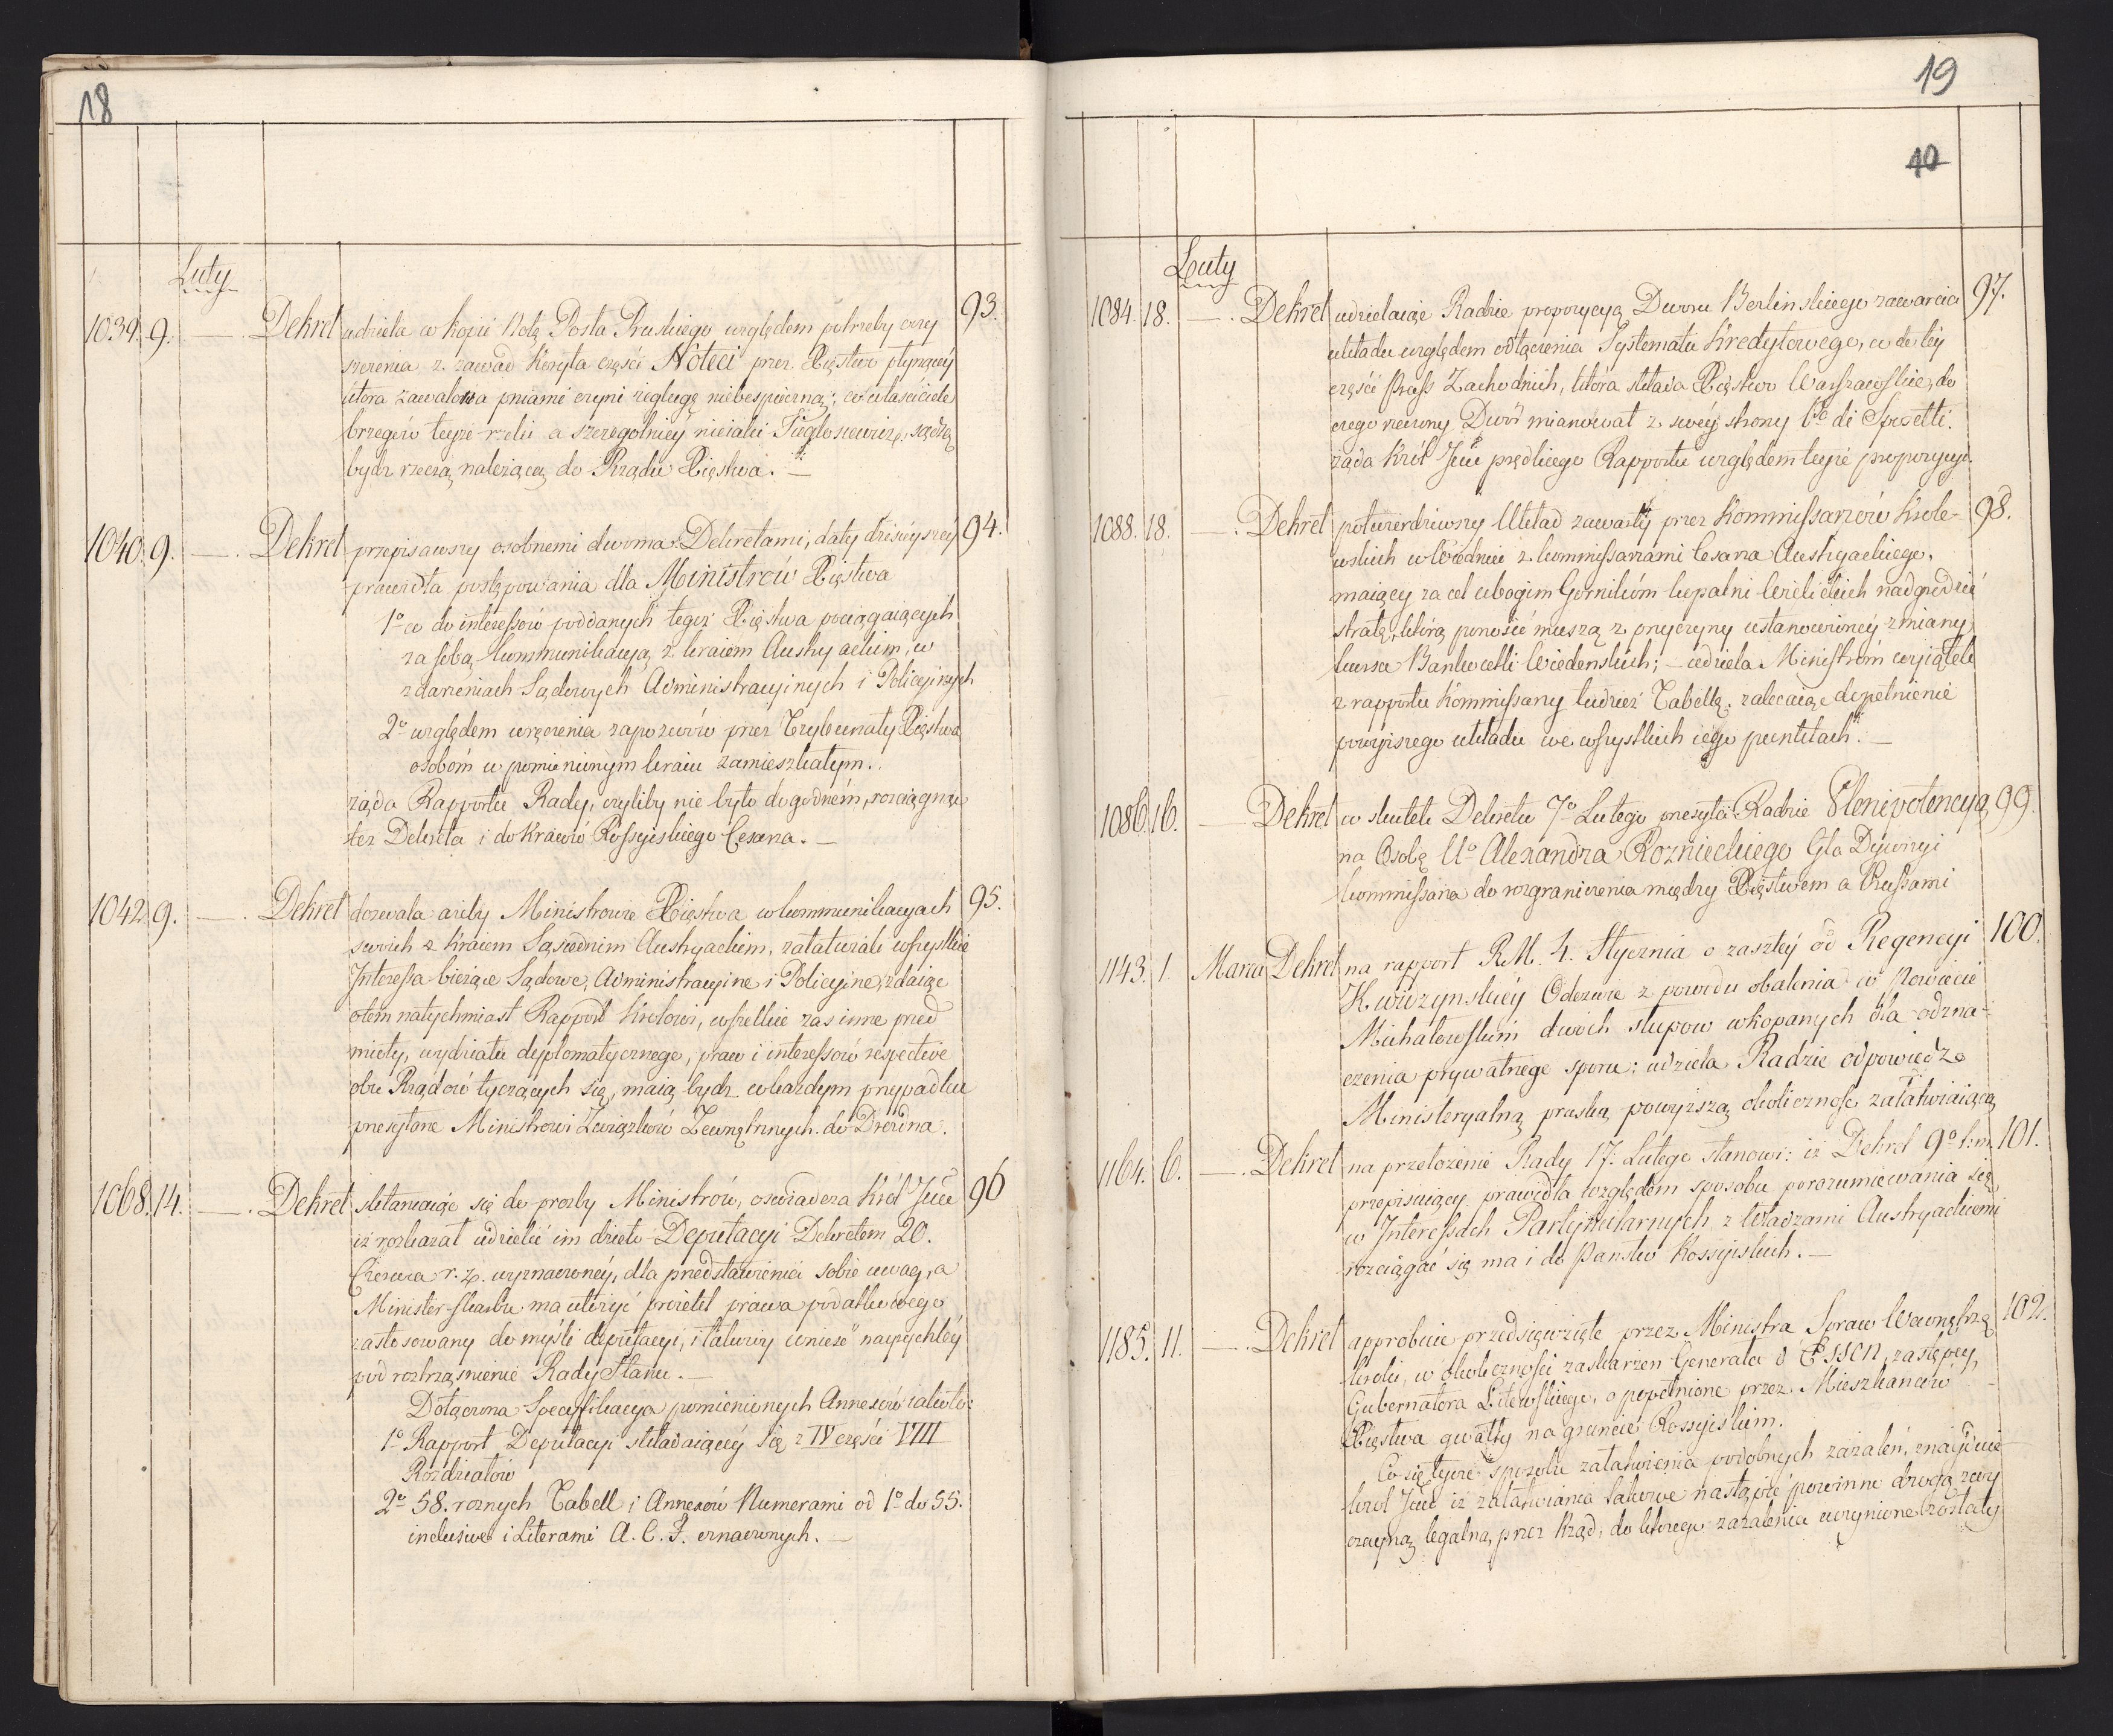 18
Luty
1039. 9. — Dekret udziela w kopii Notę Posła Pruskiego względem potrzeby oczy 93.
szczenia z zawad koryta części Noteci przez Xięstwo płynącéy
która zawalona pniami czyni żeglugę niebespieczną; co właściciele
brzegów teyże rzeki a szczególniéy nieiaki Fieglosiewicz, sądzą
bydź rzeczą należącą do Rządu Xięstwa. —
1040. 9. — Dekret przepisawszy osobnemi dwoma Dekretami, daty dzisieyszéy 94.
prawidła postępowania dla Ministrów Xięstwa
1o co do interessów poddanych tegoż Xięstwa pociągaiących
za sobą kommunikacyą z kraiem Austryackim, w
zdarzeniach Sądowych Administracyinych i Policyinych
2o względem wręczenia zapozwów przez Trybunały Xięstwa
osobom w pomienionym kraiu zamieszkałym.
żąda Rapportu Rady, czyliby nie było dogodném, rozciągnąć
też Dekreta i do kraiów Rossyiskiego Cesarza. —
1042. 9. — Dekret dozwala ażeby Ministrowie Xięstwa w kommunikacyach 95.
swoich z kraiem Sąsiednim Austryackim, załatwiali wszystkie
Interessa bieżące Sądowe, Administracyine i Policyine, zdaiąc
o tem natychmiast Rapport Królowi, wszelkie zas inne przed
mioty, wydziału dyplomatycznego, praw i interessów respective
obu Rządów tyczących się, maią bydź w każdym przypadku
przesyłane Ministrowi Związków Zewnętrznych do Drezna.
1068. 14. — Dekret skłaniaiąc się do prozby Ministrów, oswiadcza Król Jmć 96
iż rozkazał udzielić im dzieło Deputacyi Dekretem 20.
Czerwca r. z. wyznaczonéy, dla przedstawienia sobie uwag, a
Minister Skarbu ma ułożyć proiekt prawa podatkowego
zastosowany do myśli deputacyi, i takowy wnieść nayrychléy
pod roztrząśnienie Rady Stanu. —
Dołączona Specyfikacya pomienionych Annexów iako to:
1o Rapport Deputacyi składaiącéy się z IV części VIII
Rozdziałów
2o 58. roznych Tabell i Annexów Numerami od 1o do 55.
inclusive i Literami A. C. F. oznaczonych. —
19
40
Luty
1084. 18. — Dekret udzielaiąc Radzie propozycyą Dworu Berlinskiego zawarcia 97.
układu względem odłączenia Systematu Kredytowego, co do téy
części Pruss Zachodnich, która składa Xięstwo Warszawskie, do
czego rzeczony Dwór mianował z swéy strony de Sposetti.
żąda Król Jmć prędkiego Rapportu względem teyże propozycyi.
1088. 18. — Dekret potwierdziwszy Układ zawarty przez Kommissarzów Króle- 98.
wskich w Wiedniu z kommissarzami Cesarza Austryackiego,
maiący za cel ubogim Górnikóm kopalni Wielickich nadgrodzić
stratę, którą ponosić muszą z przyczyny ustanowionéy zmiany
kursu Bankocetli Wiedenskich; — udziela Ministróm wyiątek
z rapportu Kommissarzy tudzież Tabellę, zalecaiąc dopełnienie
powyższego układu we wszystkich iego punktach. —
1086. 16. — Dekret w skutek Dekretu 7o Lutego przesyła Radzie Plenipotencyą 99.
na Osobę Uo Alexandra Roznieckiego Gła Dywizyi
kommissarza do rozgraniczenia między Xięstwem a Prussami
1143. 1. Marca Dekret na rapport R.M. 4. Stycznia o zaszłéy od Regencyi 100.
Kwidzynskiéy Odezwie z powodu obalenia w Powiecie
Michałowskim dwóch słupow wkopanych dla odzna-
czenia prywatnego sporu: udziela Radzie odpowiedz
Ministeryalną pruską powyższą okoliczność załatwiaiącą
1164. 6. — Dekret na przełozenie Rady 17. Lutego stanowi: iż Dekret 9o t.m. 101.
przepisuiący prawidła względem sposobu porozumiewania się
w Interessach Partykularnych z władzami Austryackiemi
rozciągać się ma i do Państw Rossyiskich. —
1185. 11. — Dekret approbuie przedsięwzięte przez Ministra Spraw Wewnętrz 102.
kroki, w okoliczności zaskarzen Generała d'Essen, zastępcy
Gubernatora Litewskiego, o popełnione przez Mieszkanców
Xięstwa gwałty na gruncie Rossyiskim.
Co się tycze sposobu załatwienia podobnych zażaleń, znayduie
król Jmć iż załatwiania takowe nastąpić powinne drogą zwy
czayną legalną, przez Rząd, do którego zażalenia uczynione zostały